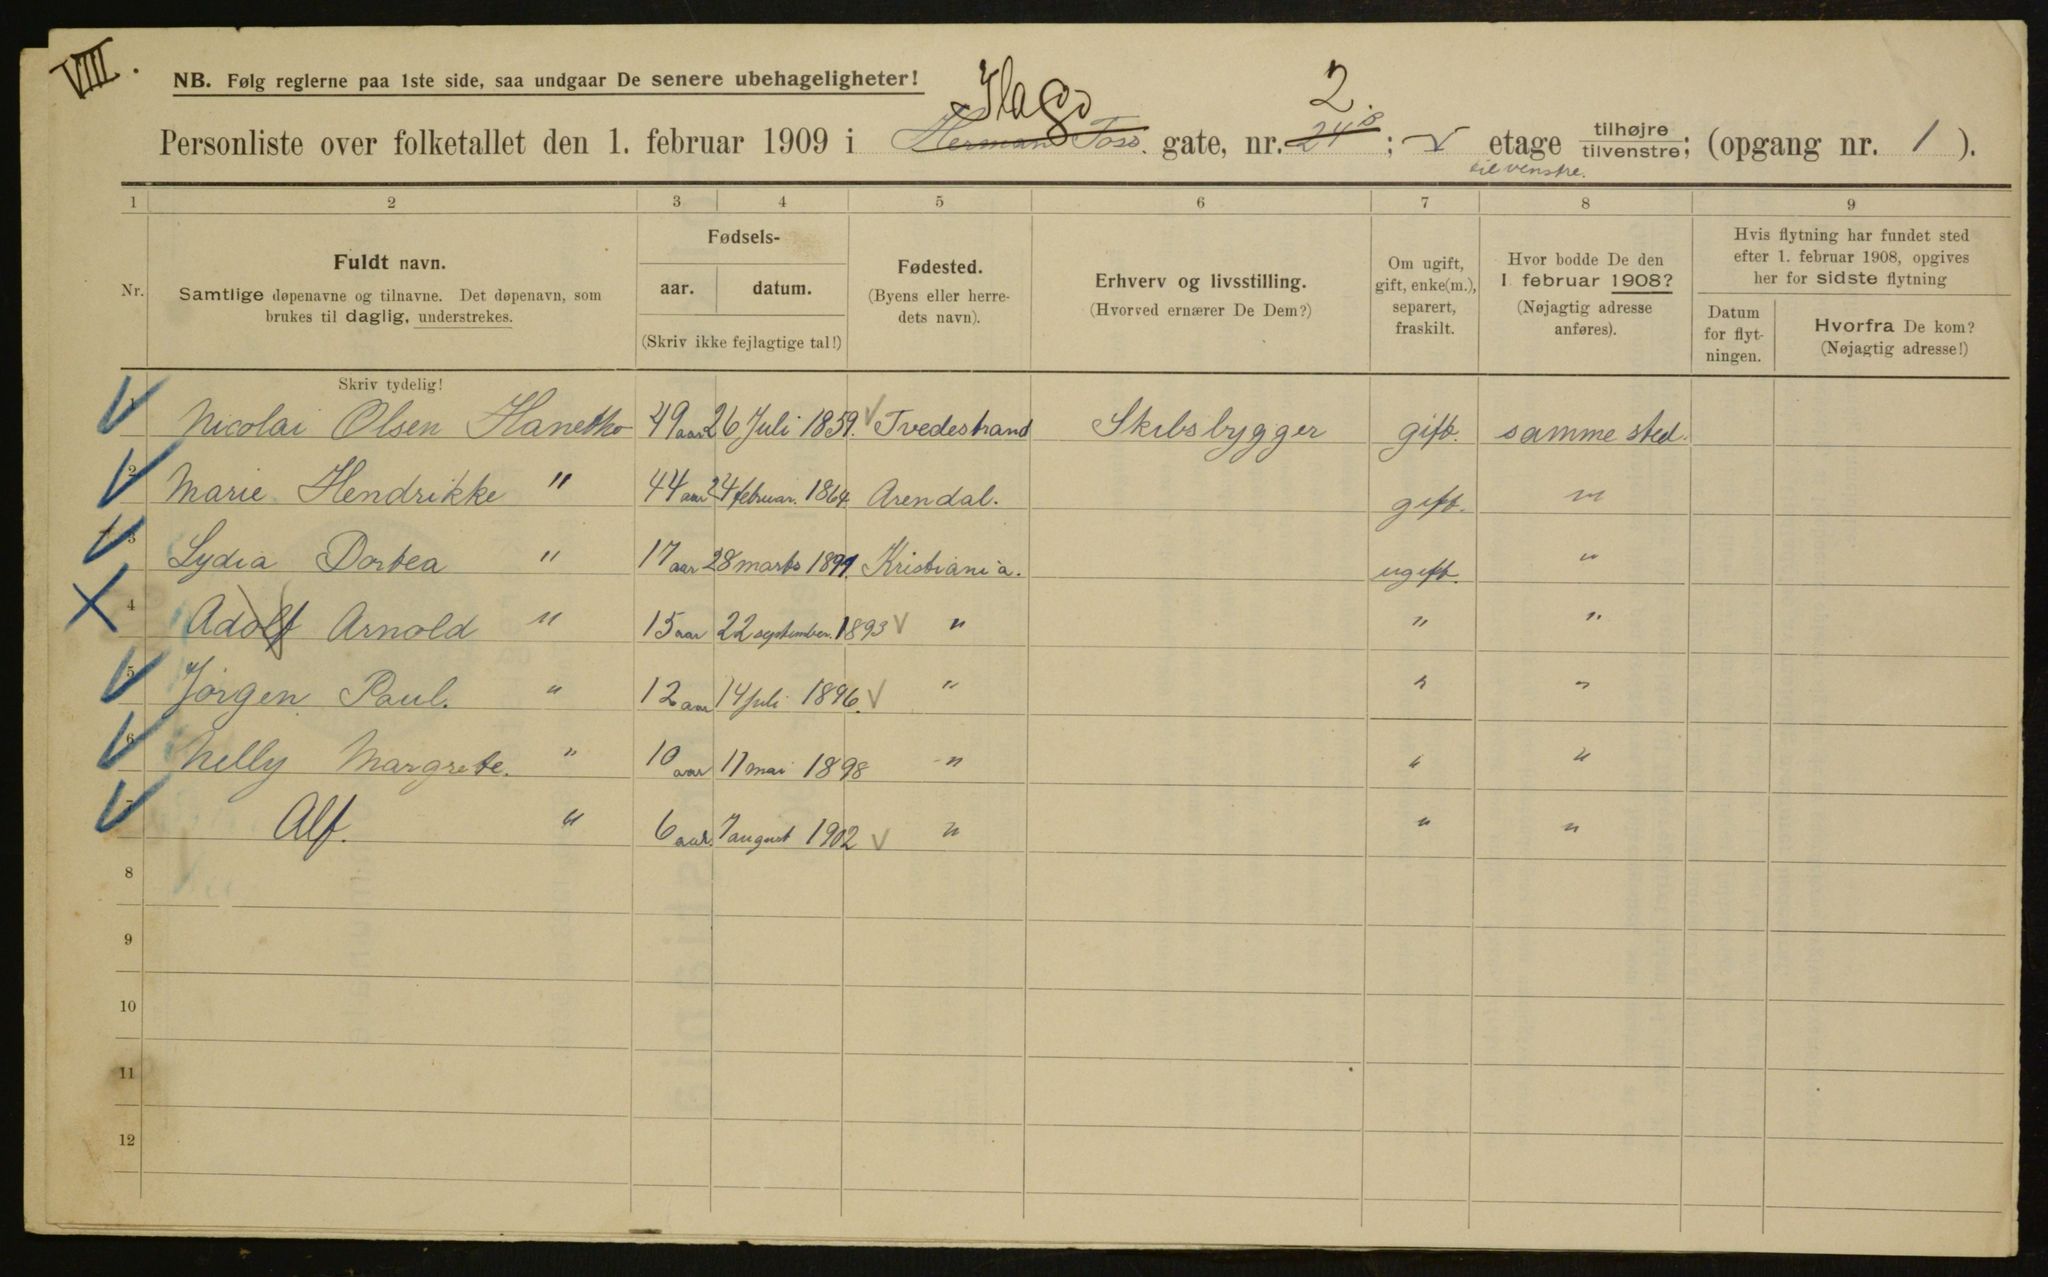 VIII.
NB. Følg reglerne paa 1ste side, saa undgaar De senere ubehageligheter!
Personliste over folketallet den 1. februar 1909 i Herman Foss. gate, nr. 24 B; V etage tilhøjre tilvenstre; (opgang nr. 1).
2.
tilvenstre.
1 2 3 4 5 6 7 8 9
Nr.
Fuldt navn.
Samtlige døpenavne og tilnavne. Det døpenavn, som
brukes til daglig, understrekes.
Skriv tydelig!
Fødsels-
aar. datum.
(Skriv ikke fejlagtige tal!)
Fødested.
(Byens eller herre-
dets navn).
Erhverv og livsstilling.
(Hvorved ernærer De Dem?)
Om ugift,
gift, enke(m.),
separert,
fraskilt.
Hvor bodde De den
1 februar 1908?
(Nøjagtig adresse
anføres).
Hvis flytning har fundet sted
efter 1. februar 1908, opgives
her for sidste flytning
Datum
for flyt-
ningen.
Hvorfra De kom?
(Nøjagtig adresse!)
1 Nicolai Olsen 49 aar 26 Juli 1859. Tvedestrand Skibsbygger gift. samme sted.
2 Marie Hendrikke " 44 aar 24 februar. 1864 Arendal. gift. "
3 Lydia Dortea " 17 aar 28 marts Kristiania. ugift. "
4 Adolf Arnold " 15 aar 22 september. 1893 " " "
5 Jörgen Paul. " 12 aar 14 Juli 1896. " " "
6 Nelly Margrete. " 10 aar 11 mai 1898 " " "
7 Alf. " 6 aar. 7 august 1902 " " "
8
9
10
11
12